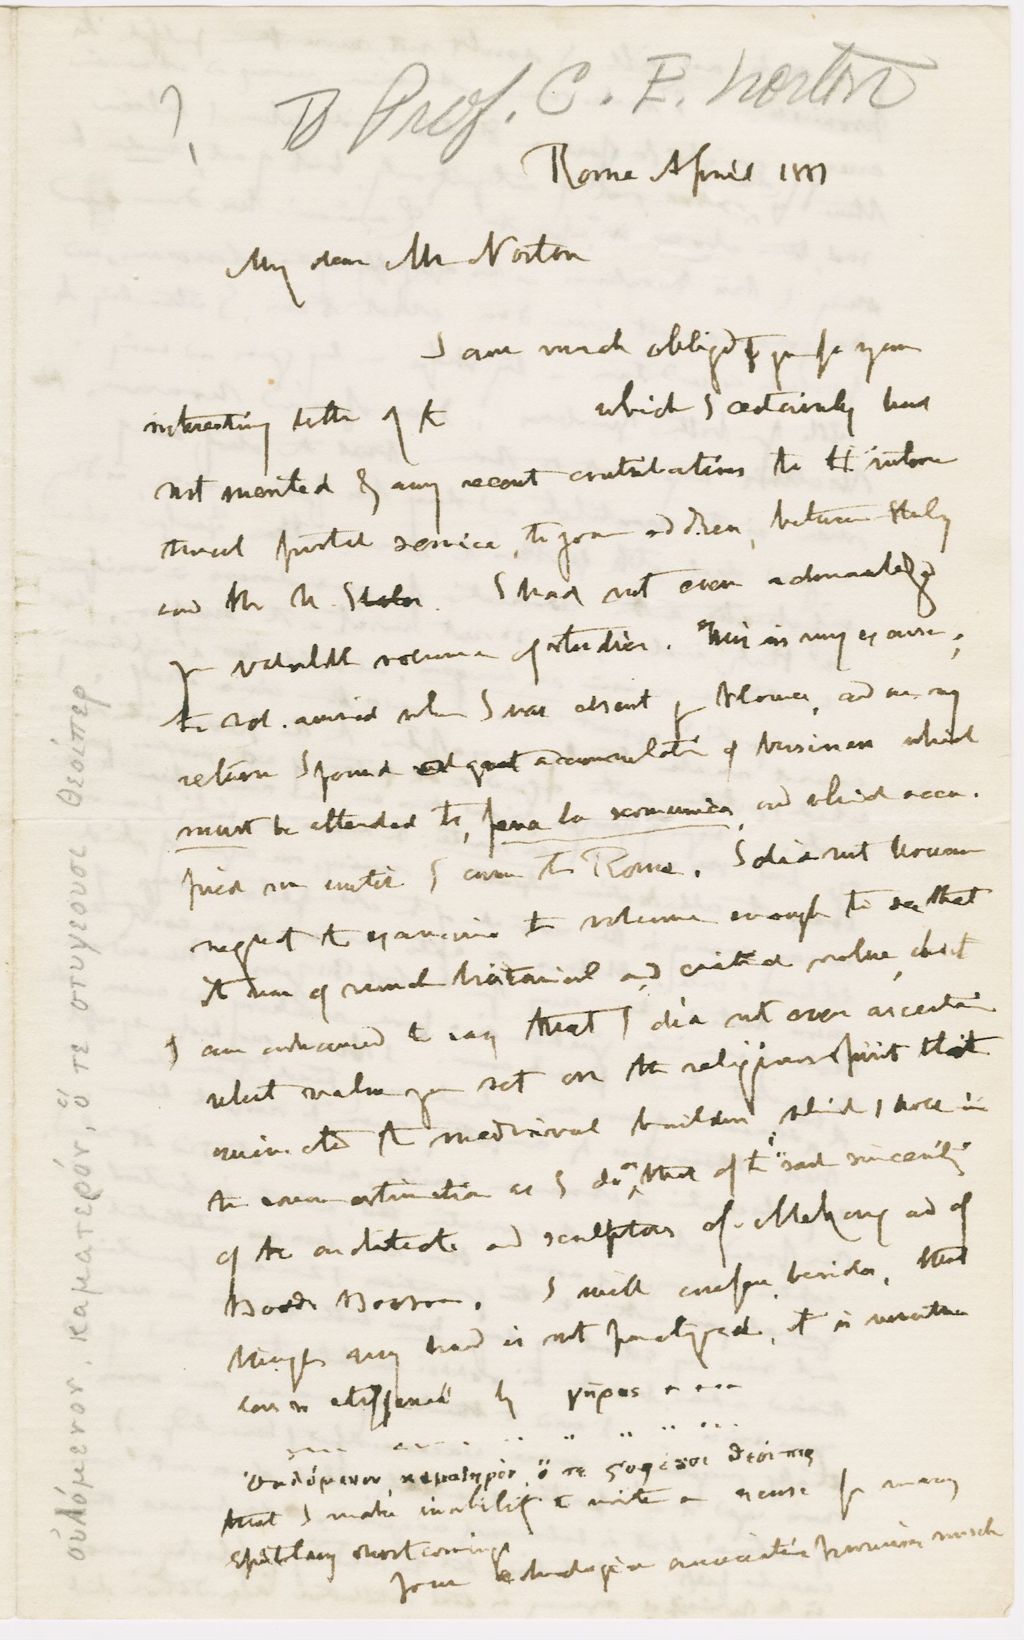 ? To Prof. C. E. Norton
Rome April 1881
My dear Mr Norton
I am much obliged to you for your
interesting letter of the which I certainly had
not merited by any recent contributions to the
postal service, to your address, between Italy
and the U. States. I had not even acknowledged
your valuable volume of studies. This is my excuse,
the vol. arrived when I was absent from Florence, and on my
return I found a great accumulation of business which
must be attended to, pena la scomunica, and which occu-
pied me until I came to Rome. I did not however
neglect to examine the volume enough to see that
it was of much historical and critical value, but
I am ashamed to say that I did not even ascertain
what value you set on the religious spirit that
animated the mediaeval builders, which I hold in
the same estimation as I do that of the "sad sincerity"
of the architects and sculptors of and of
. I will confess, besides, that
though my hand is not paralyzed, it is
stiffened by γῆρας
οὐλόμενον, καματερόν, ὅ τε στυγέουσι θεοίπερ
that I make inability to write an excuse for many
epistolary shortcomings
Your association promises much
οὐλόμενον, καματερόν, ὅ τε στυγέουσι θεοίπερ